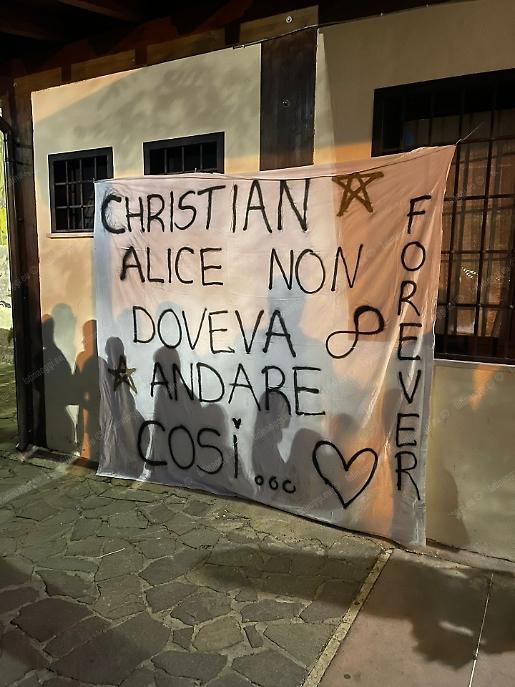 CHRISTIAN
ALICE NON
DOVEVA
ANDARE
COSì...
FOREVER